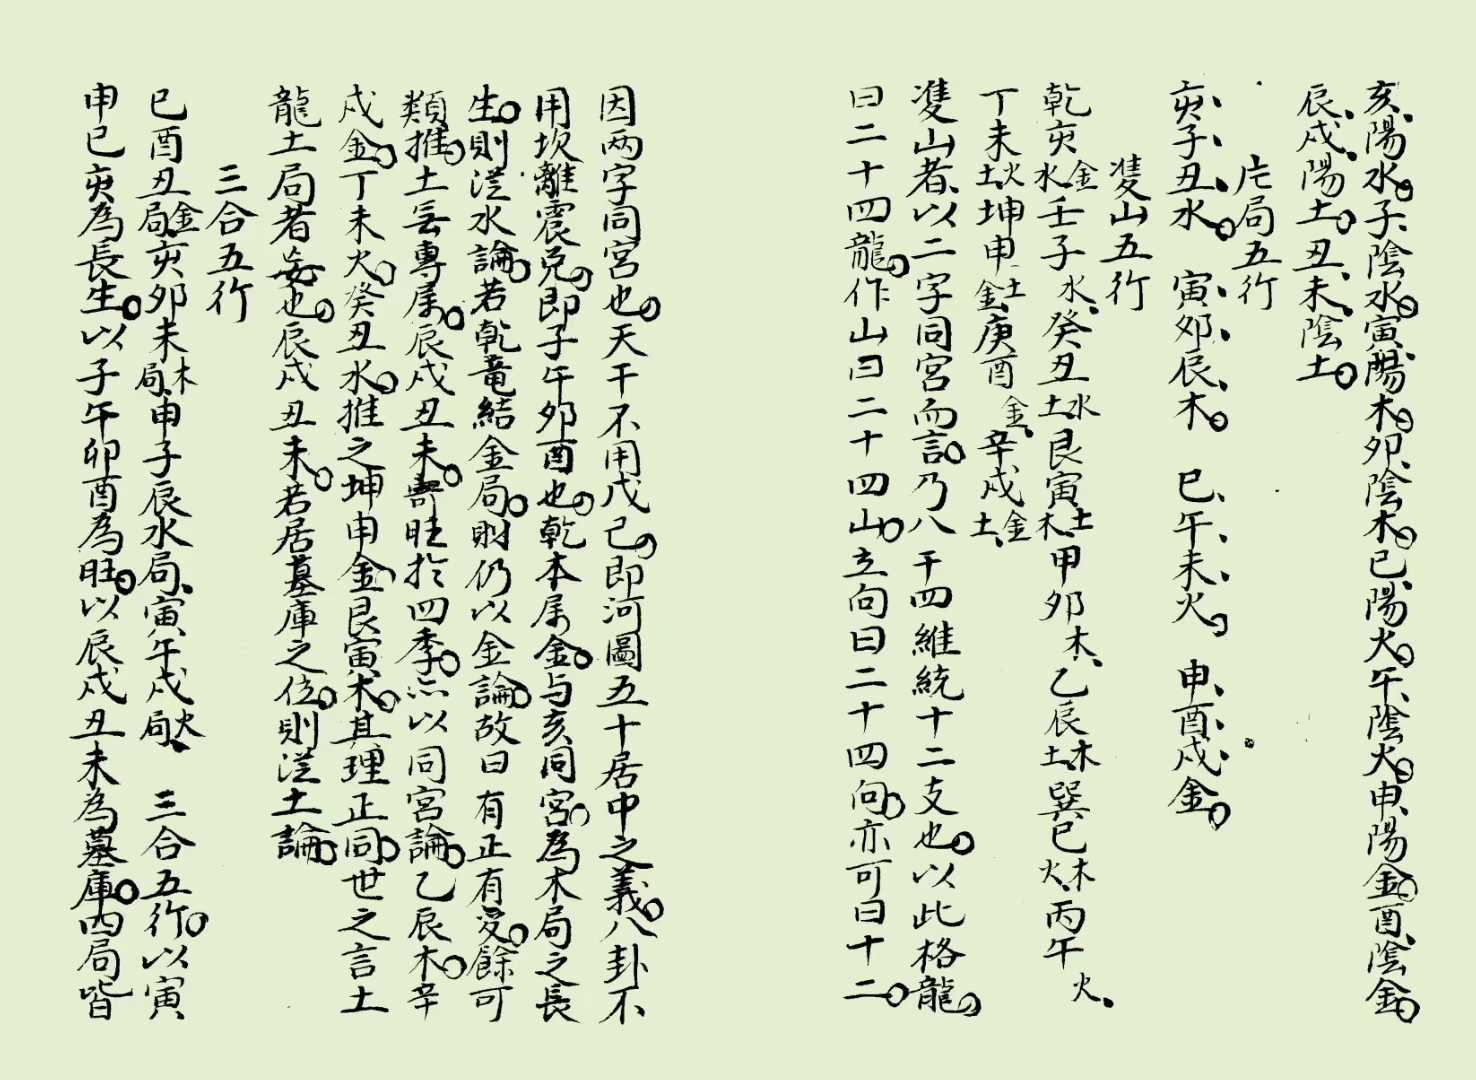 亥陽水子陰水寅陽木卯陰木巳陽火午陰火申陽金酉陰金
辰戍陽土丑未陰土
庀局五行
亥子丑水 寅卯辰木 巳午未火 申酉戍金
䨇山五行
乾亥金水壬子水癸丑水土艮寅土木甲卯木乙辰木土巽巳木火丙午火
丁未火土坤申土金庚酉金辛戍金土
䨇山者以二字同宮而言乃八干四維統十二支也以此格龍
曰二十四龍作山曰二十四山立向曰二十四向亦可曰十二
因两字同宮也天干不用戊己即河圖五十居中之義八卦不
用坎離震兑即子午卯酉也乾本属金与亥同宮為木局之長
生則從水論若乾竜結金局則仍以金論故曰有正有变餘可
類推土無專属辰戍丑未寄旺於四季亦以同宮論乙辰木辛
戍金丁未火癸丑水推之坤申金艮寅木其理正同世之言土
龍土局者妄也辰戍丑未若居墓庫之位則從土論
三合五行
巳酉丑金局亥卯未木局申子辰水局寅午戍火局 三合五行以寅
申巳亥為長生以子午卯酉為旺以辰戍丑未為墓庫四局皆